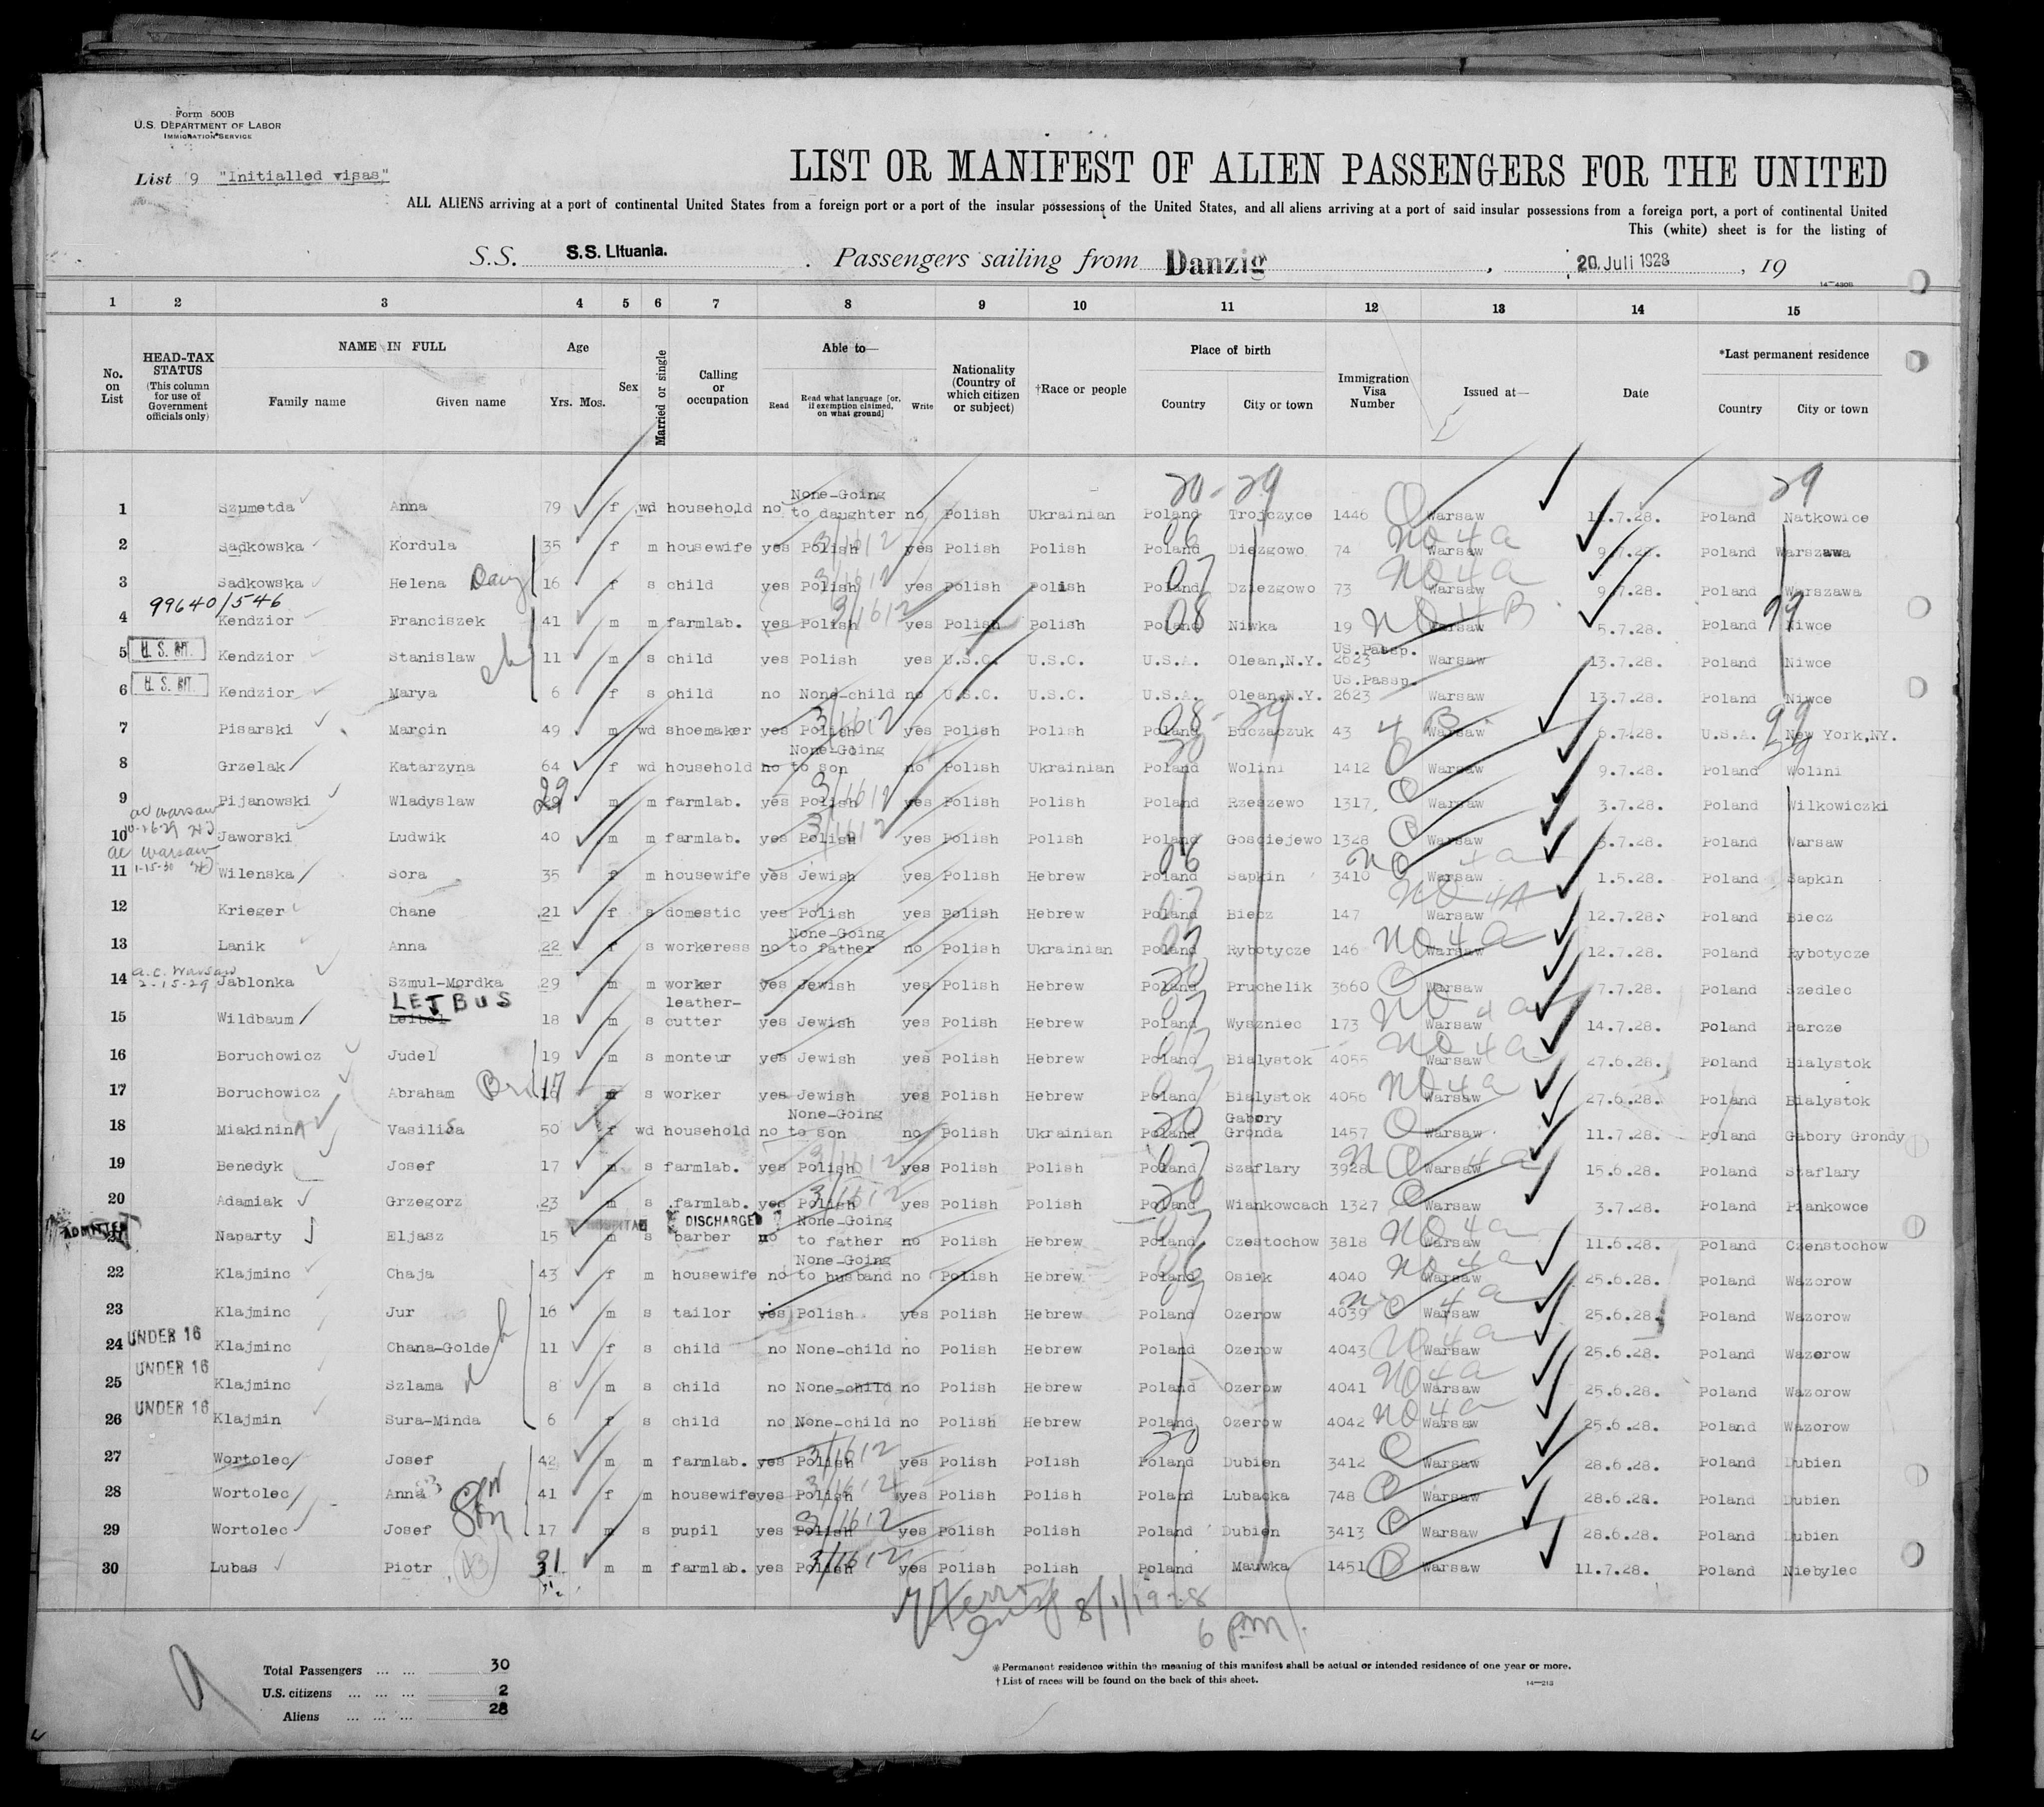 Form 500B
U.S. DEPARTMENT OF LABOR
IMMIGRATION SERVICE
List 9 "Initialled visas"
LIST OR MANIFEST OF ALIEN PASSENGERS FOR THE UNITED
ALL ALIENS arriving at a port of continental United States from a foreign port or a port of the insular possessions of the United States, and all aliens arriving at a port of said insular possessions from a foreign port, a port of continental United
This (white) sheet is for the listing of
S.S. S.S. Lituania. Passengers sailing from Danzig, 20. Juli 1928, 19
14—430B
1 2 3 4 5 6 7 8 9 10 11 12 13 14 15
No. on List HEAD-TAX STATUS (This column for use of Government officials only) NAME IN FULL Family name Given name Age Yrs. Mos. Sex Married or single Calling or occupation Able to— Read Read what language [or, if exemption claimed, on what ground] Write Nationality (Country of which citizen or subject) †Race or people Place of birth Country City or town Immigration Visa Number Issued at— Date *Last permanent residence Country City or town
20-29 29
1 Szumetda Anna 79 f wd household no None-Going to daughter no Polish Ukrainian Poland Trojczyce 1446 Warsaw 11.7.28. Poland Natkowice
2 Sadkowska Kordula 35 f m housewife yes Polish yes Polish Polish Poland 06 Diezgowo 74 NO 4a Warsaw 9.7.28. Poland Warszawa
3 Sadkowska Helena 16 f s child yes Polish yes Polish Polish Poland 07 Dziezgowo 73 NO 4a Warsaw 9.7.28. Poland Warszawa
99640/546
4 Kendzior Franciszek 41 m m farmlab. yes Polish 3/1612 yes Polish Polish Poland 08 Niwka 19 NO 4B Warsaw 5.7.28. Poland Niwce
5 U.S. CIT. Kendzior Stanislaw 11 m s child yes Polish yes U.S.C. U.S.C. U.S.A. Olean,N.Y. US.Passp. 2623 Warsaw 13.7.28. Poland Niwce
6 U.S. CIT. Kendzior Marya 6 f s child no None-child no U.S.C. U.S.C. U.S.A. Olean,N.Y. US.Passp. 2623 Warsaw 13.7.28. Poland Niwce
7 Pisarski Marcin 49 m wd shoemaker yes Polish 3/1612 yes Polish Polish Poland 08-29 Buczaczuk 43 4 B Warsaw 6.7.28. U.S.A. New York,NY.
8 Grzelak Katarzyna 64 f wd household no None-Going to son no Polish Ukrainian Poland 20 Wolini 1412 Warsaw 9.7.28. Poland Wolini
9 Pijanowski Wladyslaw 29 m m farmlab. yes Polish 3/1612 yes Polish Polish Poland Rzeszewo 1317 Warsaw 3.7.28. Poland Wilkowiczki
ac Warsaw
10 Jaworski Ludwik 40 m m farmlab. yes Polish 3/1612 yes Polish Polish Poland Gosciejewo 1328 Warsaw 3.7.28. Poland Warsaw
ac Warsaw 1-15-30
11 Wilenska Sora 35 f m housewife yes Jewish yes Polish Hebrew Poland 06 Sapkin 3410 NO 4a Warsaw 1.5.28. Poland Sapkin
12 Krieger Chane 21 f s domestic yes Polish yes Polish Hebrew Poland 07 Biecz 147 NO 4A Warsaw 12.7.28. Poland Biecz
13 Lanik Anna 22 f s workeress no None-Going to father no Polish Ukrainian Poland 07 Rybotycze 146 NO 4a Warsaw 12.7.28. Poland Rybotycze
a.c. Warsaw 2-15-29
14 Jablonka Szmul-Mordka 29 m m worker yes Jewish yes Polish Hebrew Poland 20 Pruchelik 3660 Warsaw 7.7.28. Poland Szedlec
LEJBUS
15 Wildbaum Leibel 18 m s leather-cutter yes Jewish yes Polish Hebrew Poland 07 Wyszniec 173 NO 4a Warsaw 14.7.28. Poland Parcze
16 Boruchowicz Judel 19 m s monteur yes Jewish yes Polish Hebrew Poland 07 Bialystok 4055 NO 4a Warsaw 27.6.28. Poland Bialystok
17 Boruchowicz Abraham 17 m s worker yes Jewish yes Polish Hebrew Poland 07 Bialystok 4056 NO 4a Warsaw 27.6.28. Poland Bialystok
18 Miakinina Vasilisa 50 f wd household no None-Going to son no Polish Ukrainian Poland 20 Gabory Gronda 1457 Warsaw 11.7.28. Poland Gabory Grondy
19 Benedyk Josef 17 m s farmlab. yes Polish 3/1612 yes Polish Polish Poland 07 Szaflary 3928 NO 4a Warsaw 15.6.28. Poland Szaflary
20 Adamiak Grzegorz 23 m s farmlab. yes Polish 3/1612 yes Polish Polish Poland 20 Wiankowcach 1327 Warsaw 3.7.28. Poland Piankowce
ADMITTED HOSPITAL DISCHARGED
21 Naparty Eljasz 15 m s barber no None-Going to father no Polish Hebrew Poland 07 Czestochow 3818 NO 4a Warsaw 11.6.28. Poland Czenstochow
22 Klajminc Chaja 43 f m housewife no None-Going to husband no Polish Hebrew Poland 06 Osiek 4040 NO 4a Warsaw 25.6.28. Poland Wazorow
23 Klajminc Jur 16 m s tailor yes Polish yes Polish Hebrew Poland 07 Ozerow 4039 NO 4a Warsaw 25.6.28. Poland Wazorow
24 UNDER 16 Klajminc Chana-Golde 11 f s child no None-child no Polish Hebrew Poland Ozerow 4043 NO 4a Warsaw 25.6.28. Poland Wazorow
25 UNDER 16 Klajminc Szlama 8 m s child no None-child no Polish Hebrew Poland Ozerow 4041 NO 4a Warsaw 25.6.28. Poland Wazorow
26 UNDER 16 Klajmin Sura-Minda 6 f s child no None-child no Polish Hebrew Poland Ozerow 4042 NO 4a Warsaw 25.6.28. Poland Wazorow
27 Wortolec Josef 42 m m farmlab. yes Polish 3/1612 yes Polish Polish Poland 20 Dubien 3412 Warsaw 28.6.28. Poland Dubien
28 Wortolec Anna 41 f m housewife yes Polish 3/1612 yes Polish Polish Poland Lubacka 748 Warsaw 28.6.28. Poland Dubien
29 Wortolec Josef 17 m s pupil yes Polish 3/1612 yes Polish Polish Poland Dubien 3413 Warsaw 28.6.28. Poland Dubien
30 Lubas Piotr 31 m m farmlab. yes Polish 3/1612 yes Polish Polish Poland Mauwka 1451 Warsaw 11.7.28. Poland Niebylec
8/1/1928
6 pm
Total Passengers ... ... 30
U.S. citizens ... ... ... 2
Aliens ... ... ... 28
* Permanent residence within the meaning of this manifest shall be actual or intended residence of one year or more.
† List of races will be found on the back of this sheet.
14—213